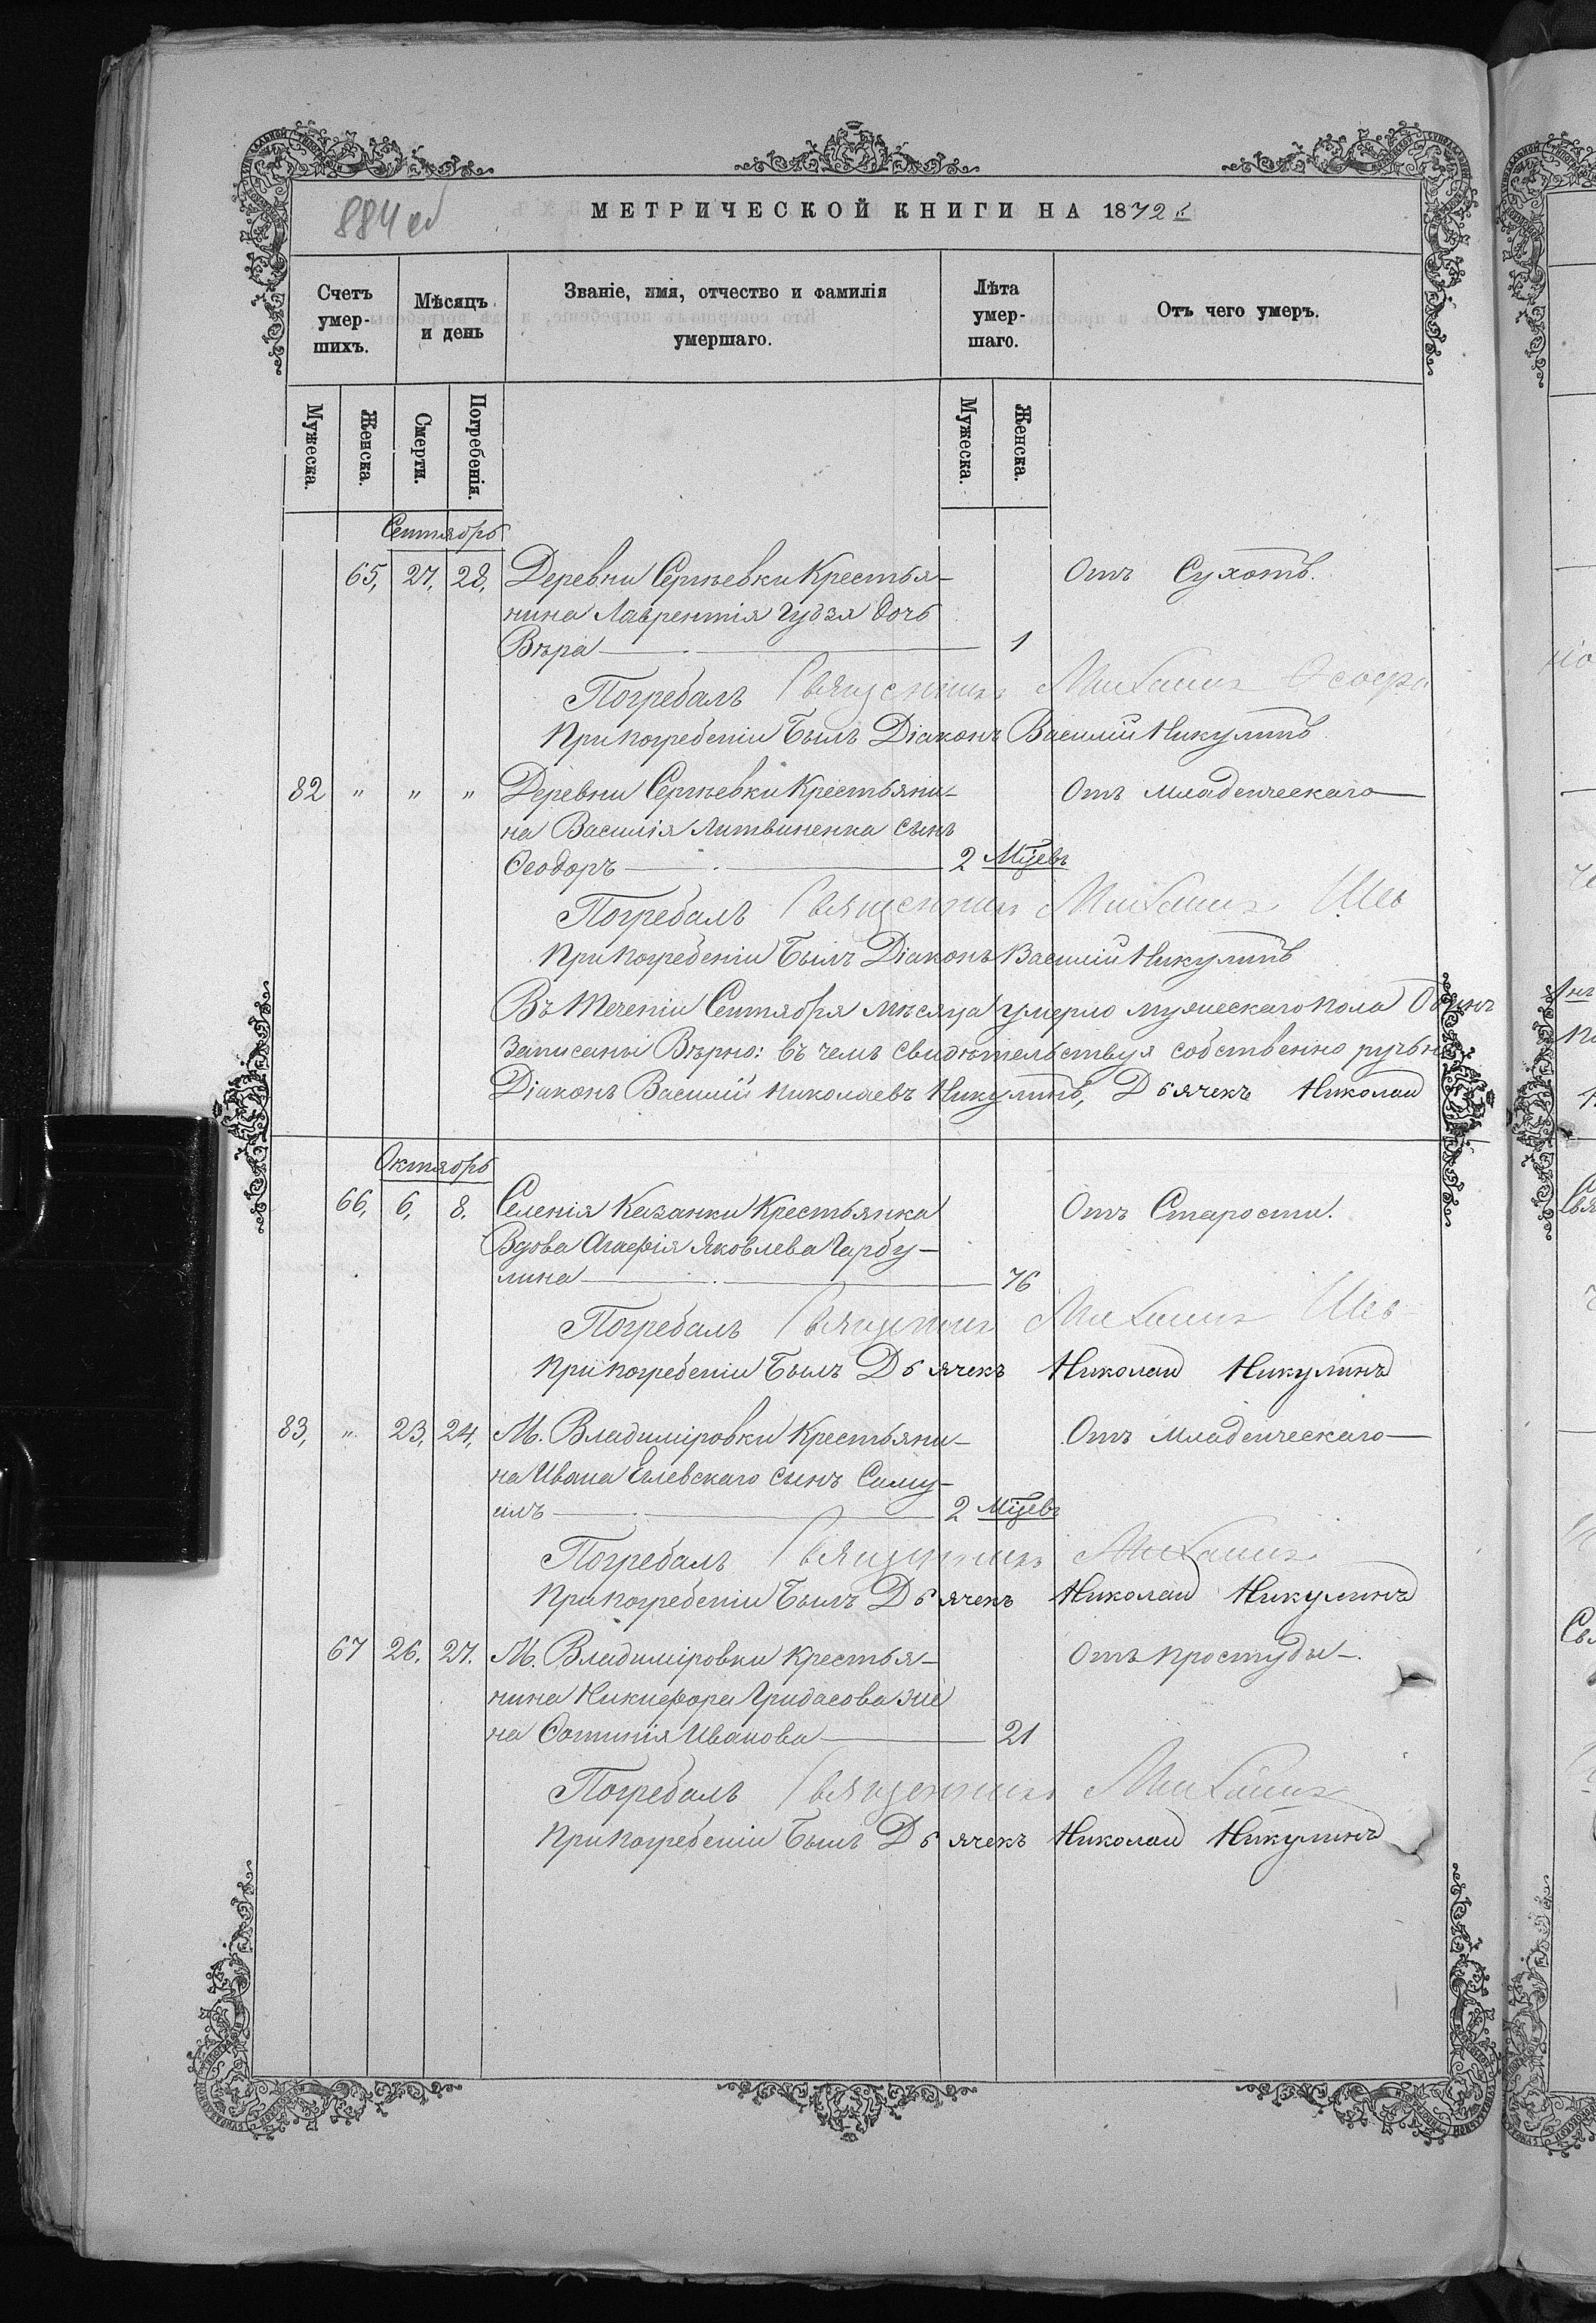 884 об
МЕТРИЧЕСКОЙ КНИГИ НА 1872 г.
Счетъ умершихъ.
Мѣсяцъ и день
Званіе, имя, отчество и фамилія умершаго.
Лѣта умершаго.
Отъ чего умеръ.
Мужеска.
Женска.
Смерти.
Погребенія.
Мужеска.
Женска.
Сентябрь
65, 27, 28, Деревни Сергѣевки Крестья- Отъ Сухотъ.
нина Лаврентія Гудзя дочь
Вѣра 1
Погребалъ Священникъ Михаилъ
При погребеніи былъ Діаконъ Василій Никулинъ
82 " " " Деревни Сергѣевки Крестьяни- Отъ младенческаго
на Василія Литвиненка сынъ
Ѳеодоръ 2 Мцевъ
Погребалъ Священникъ Михаилъ Шев
При погребеніи былъ Діаконъ Василій Никулинъ
Въ теченіи Сентября мѣсяца умерло мужескаго пола Одинъ
Записаны Вѣрно: въ чемъ свидѣтельствуя собственно ручьно
Діаконъ Василій Николаевъ Никулинъ, Дьячекъ Николай
Октябрь
66, 6, 8. Селенія Казанки Крестьянка Отъ Старости.
Вдова Агафія Яковлева Гарбу-
лина 76
Погребалъ Священникъ Михаилъ Шев
При погребеніи былъ Дьячекъ Николай Никулинъ
83, " 23, 24, М. Владиміровки Крестьяни- Отъ младенческаго
на Ивана Еневскаго сынъ Саму-
илъ 2 Мцевъ
Погребалъ Священникъ Михаилъ
При погребеніи былъ Дьячекъ Николай Никулинъ
67 26, 27. М. Владиміровки Крестья- Отъ простуды.
нина Никифора Гридасова же
на Фотинія Иванова 21
Погребалъ Священникъ Михаилъ
При погребеніи былъ Дьячекъ Николай Никулинъ